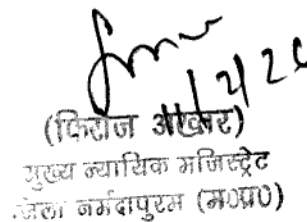 (फिरोज अख्तर)
मुख्य न्यायिक मजिस्ट्रेट
जिला नर्मदापुरम (म०प्र०)